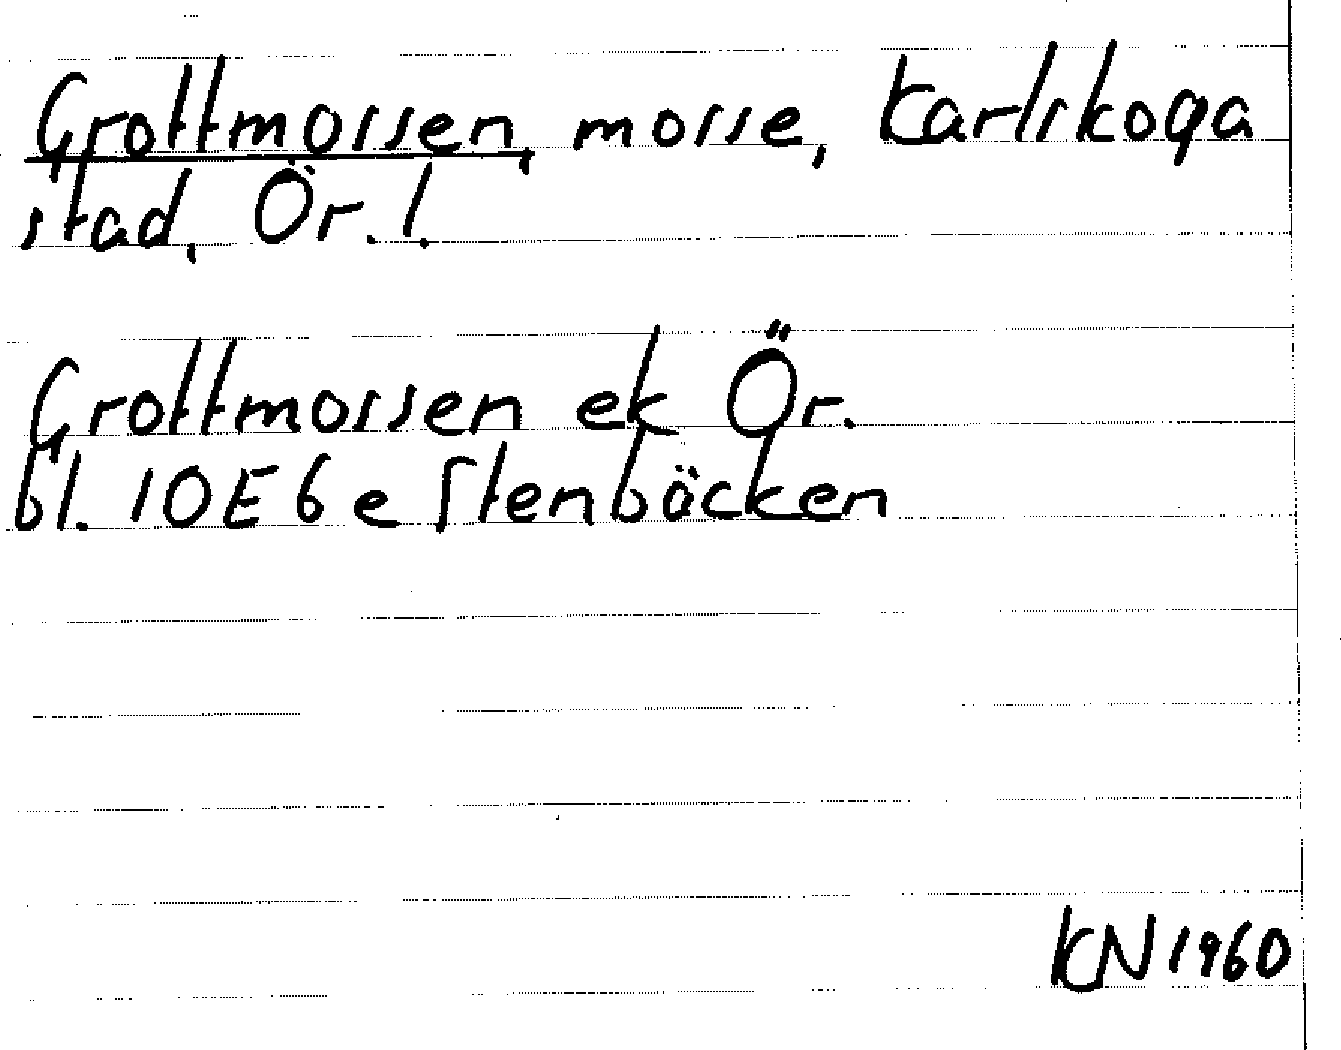 Grottmossen, mosse, Karlskoga
stad, Ör. l.
Grottmossen ek Ör.
bl. 10E6e Stenbäcken
KN 1960